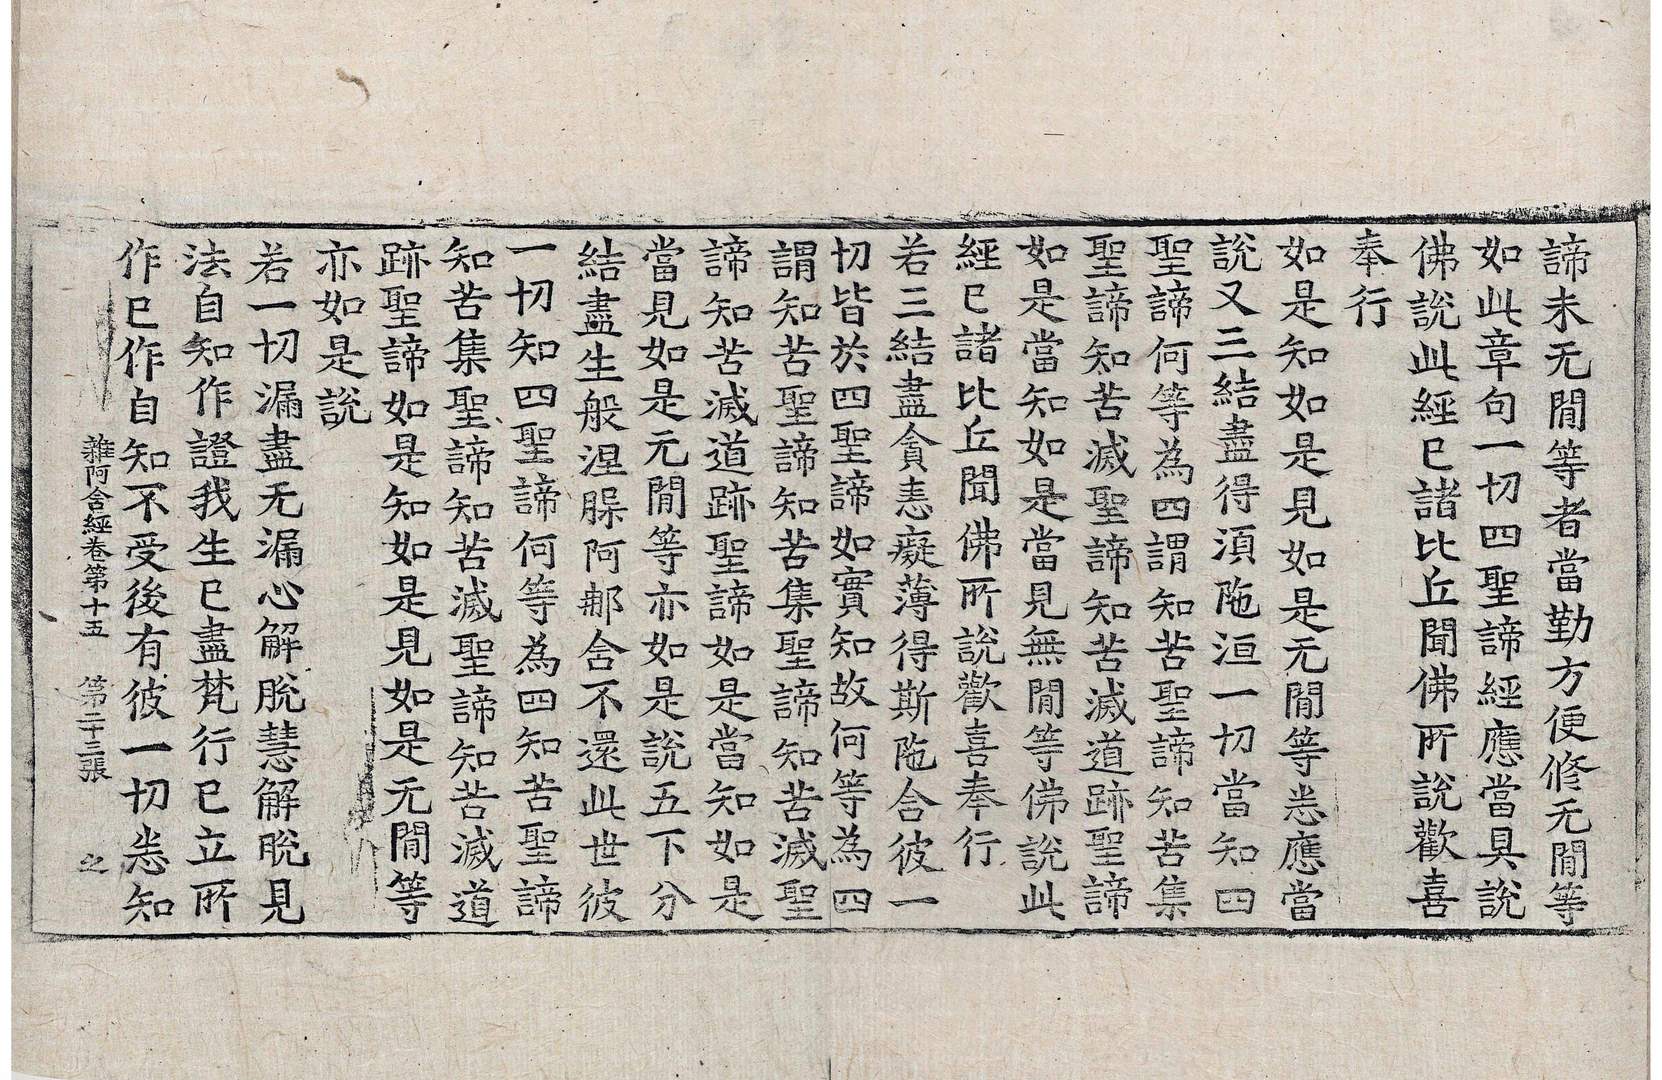 諦未无閒等者當勤方便修无閒等
如此章句一切四聖諦經應當具說
佛說此經已諸比丘聞佛所說歡喜
奉行
如是知如是見如是无閒等悉應當
說又三結盡得湏陁洹一切當知四
聖諦何等為四謂知苦聖諦知苦集
聖諦知苦滅聖諦知苦滅道跡聖諦
如是當知如是當見無閒等佛說此
經已諸比丘聞佛所說歡喜奉行
若三結盡貪恚癡薄得斯陁含彼一
切皆於四聖諦如實知故何等為四
謂知苦聖諦知苦集聖諦知苦滅聖
諦知苦滅道跡聖諦如是當知如是
當見如是无閒等亦如是說五下分
結盡生般涅槃阿那含不還此世彼
一切知四聖諦何等為四知苦聖諦
知苦集聖諦知苦滅聖諦知苦滅道
跡聖諦如是知如是見如是无閒等
亦如是說
若一切漏盡无漏心解脫慧解脫見
法自知作證我生已盡梵行已立所
作已作自知不受後有彼一切悉知
雜阿含經卷第十五 第二十三張 之